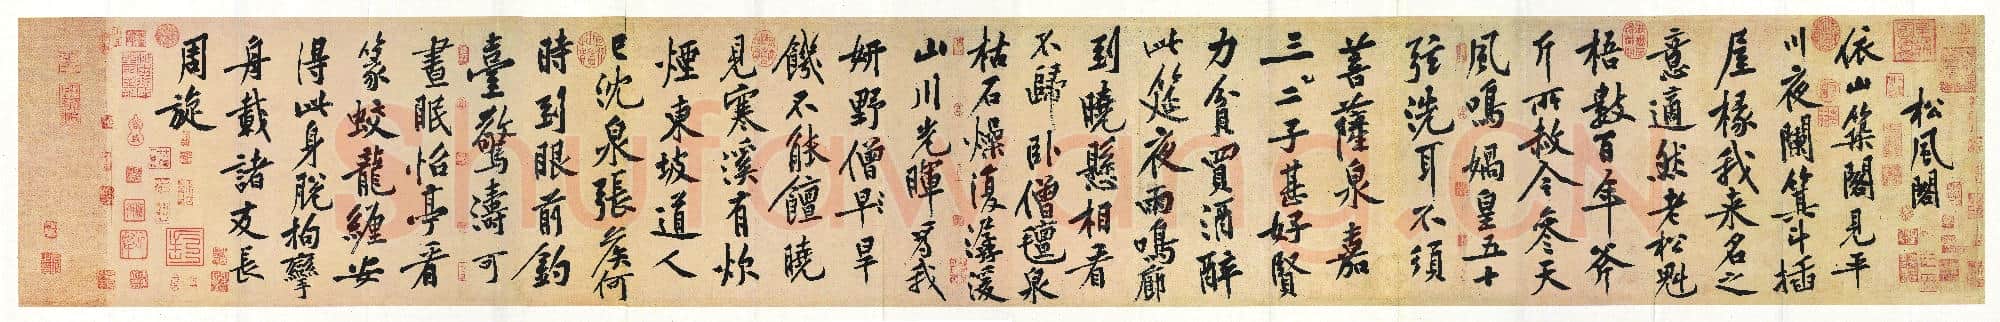 松風閣
依山築閣見平
川夜闌箕斗插
屋椽我来名之
意適然老松魁
梧數百年斧
斤所赦今參天
風鳴媧皇五十
弦洗耳不須
菩薩泉嘉
三二子甚好賢
力貧買酒醉
此筵夜雨鳴廊
到曉懸相看
不歸臥僧氊泉
枯石燥復潺湲
山川光暉為我
妍野僧早旱
饑不能饘曉
見寒溪有炊
煙東坡道人
已沈泉張侯何
時到眼前釣
臺驚濤可
晝眠怡亭看
篆蛟龍纏安
得此身脫拘攣
舟載諸友長
周旋
Shufawang.CN